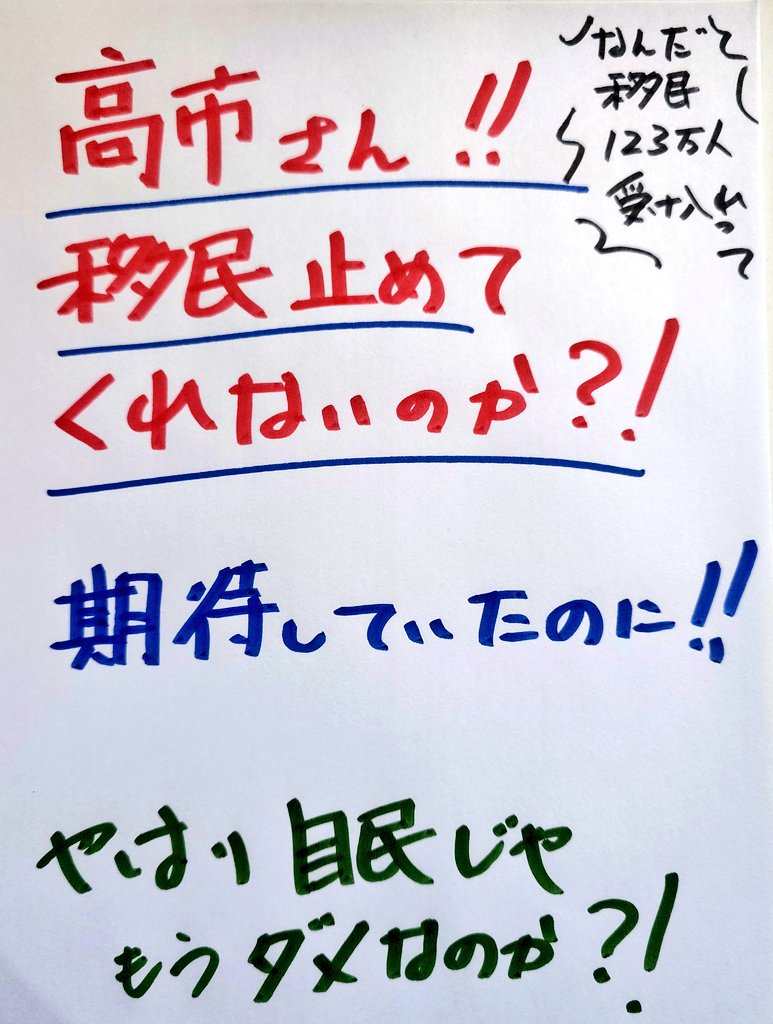 高市さん!!
移民止めて
くれないのか?!
なんだと
移民
123万人
受け入れ
って
期待していたのに!!
やはり自民じゃ
もうダメなのか?!